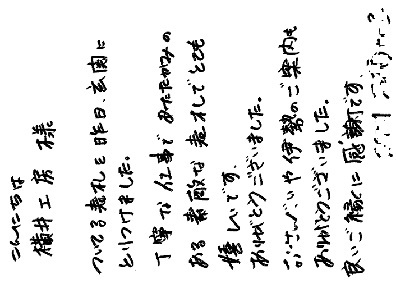 こんにちは
横井工房 様
ついてる表札を昨日、玄関に
とりつけました。
丁寧な仕事であたたかみの
ある 素敵な 表札でとても
嬉しいです。
ありがとうございました。
おせんべいや伊勢のご案内も
ありがとうございました。
良いご縁に感謝です。